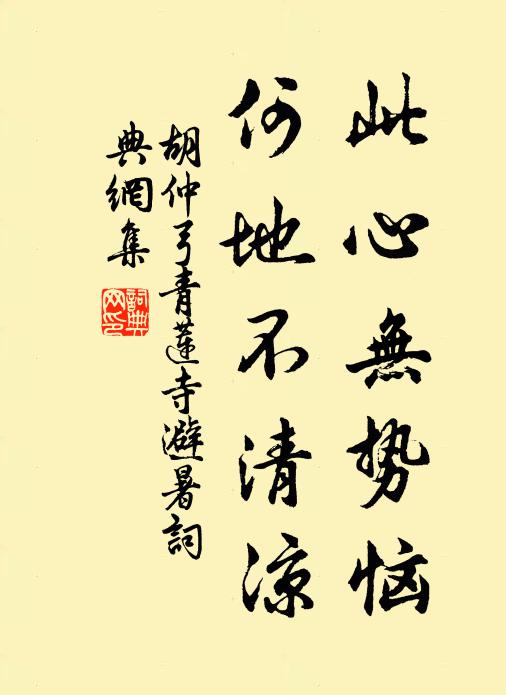 此心無势恼
何地不清凉
胡仲弓青蓮寺避暑詞
典網集
詞典網印